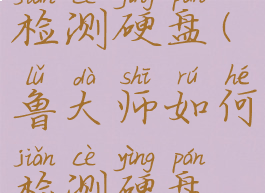 jiǎn cè yìng pán
检测硬盘(
lǔ dà shī rú hé
鲁大师如何
jiǎn cè yìng pán
检测硬盘